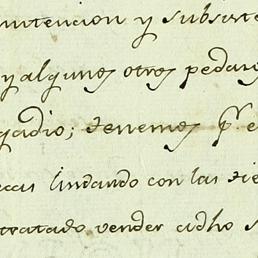 mntencion y subsiste
y algunos otros pedas
gadio; tenemos pr e
ecas lindando con las tie
tratado vender a dho s